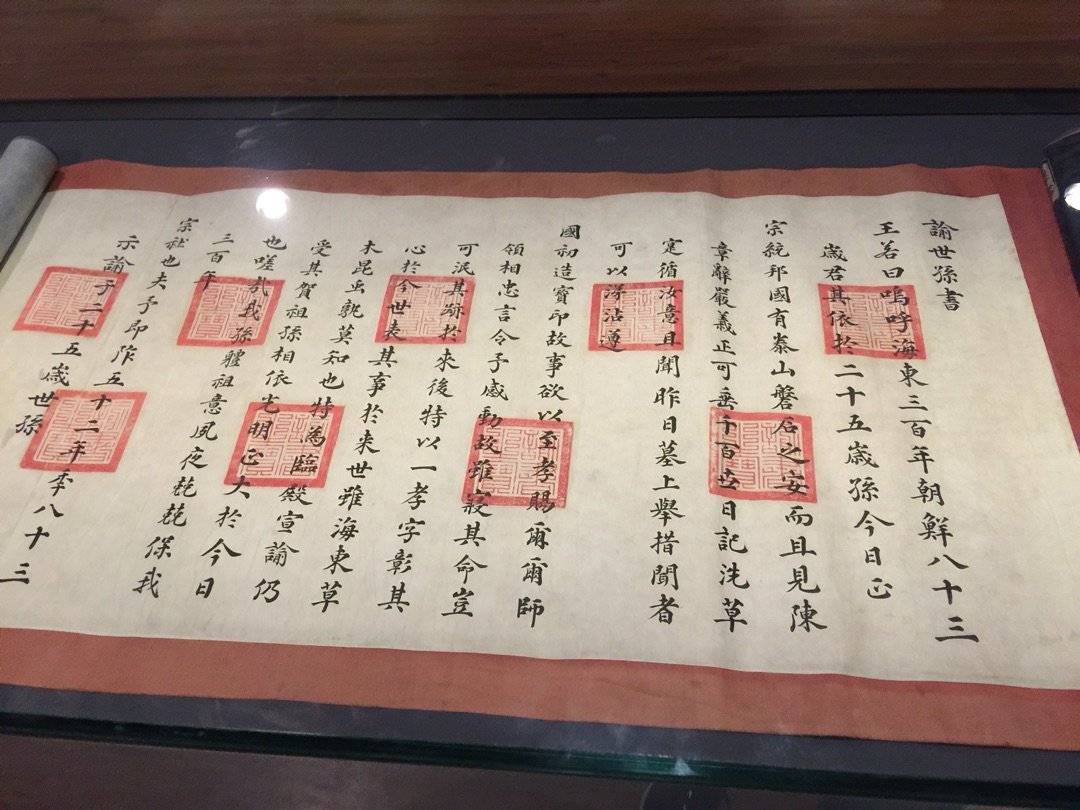 諭世孫書
王若曰嗚呼海東三百年朝鮮八十三
歲君其依於二十五歲孫今日正
宗統邦國有泰山磐石之安而且見陳
章辭嚴義正可垂千百世日記洗草
寔循汝意且聞昨日墓上舉措聞者
可以涕沾遵
國初造寶印故事欲以至孝賜爾爾師
領相忠言令予感動故雖寢其命豈
可泯其跡於來後特以一孝字彰其
心於今世表其事於来世雖海東草
木昆虫孰莫知也特為臨殿宣諭仍
受其賀祖孫相依光明正大於今日
也嗟哉我孫體祖意夙夜兢兢保我
三百年
宗社也夫予即阼五十二年季八十三
示諭于二十五歲世孫